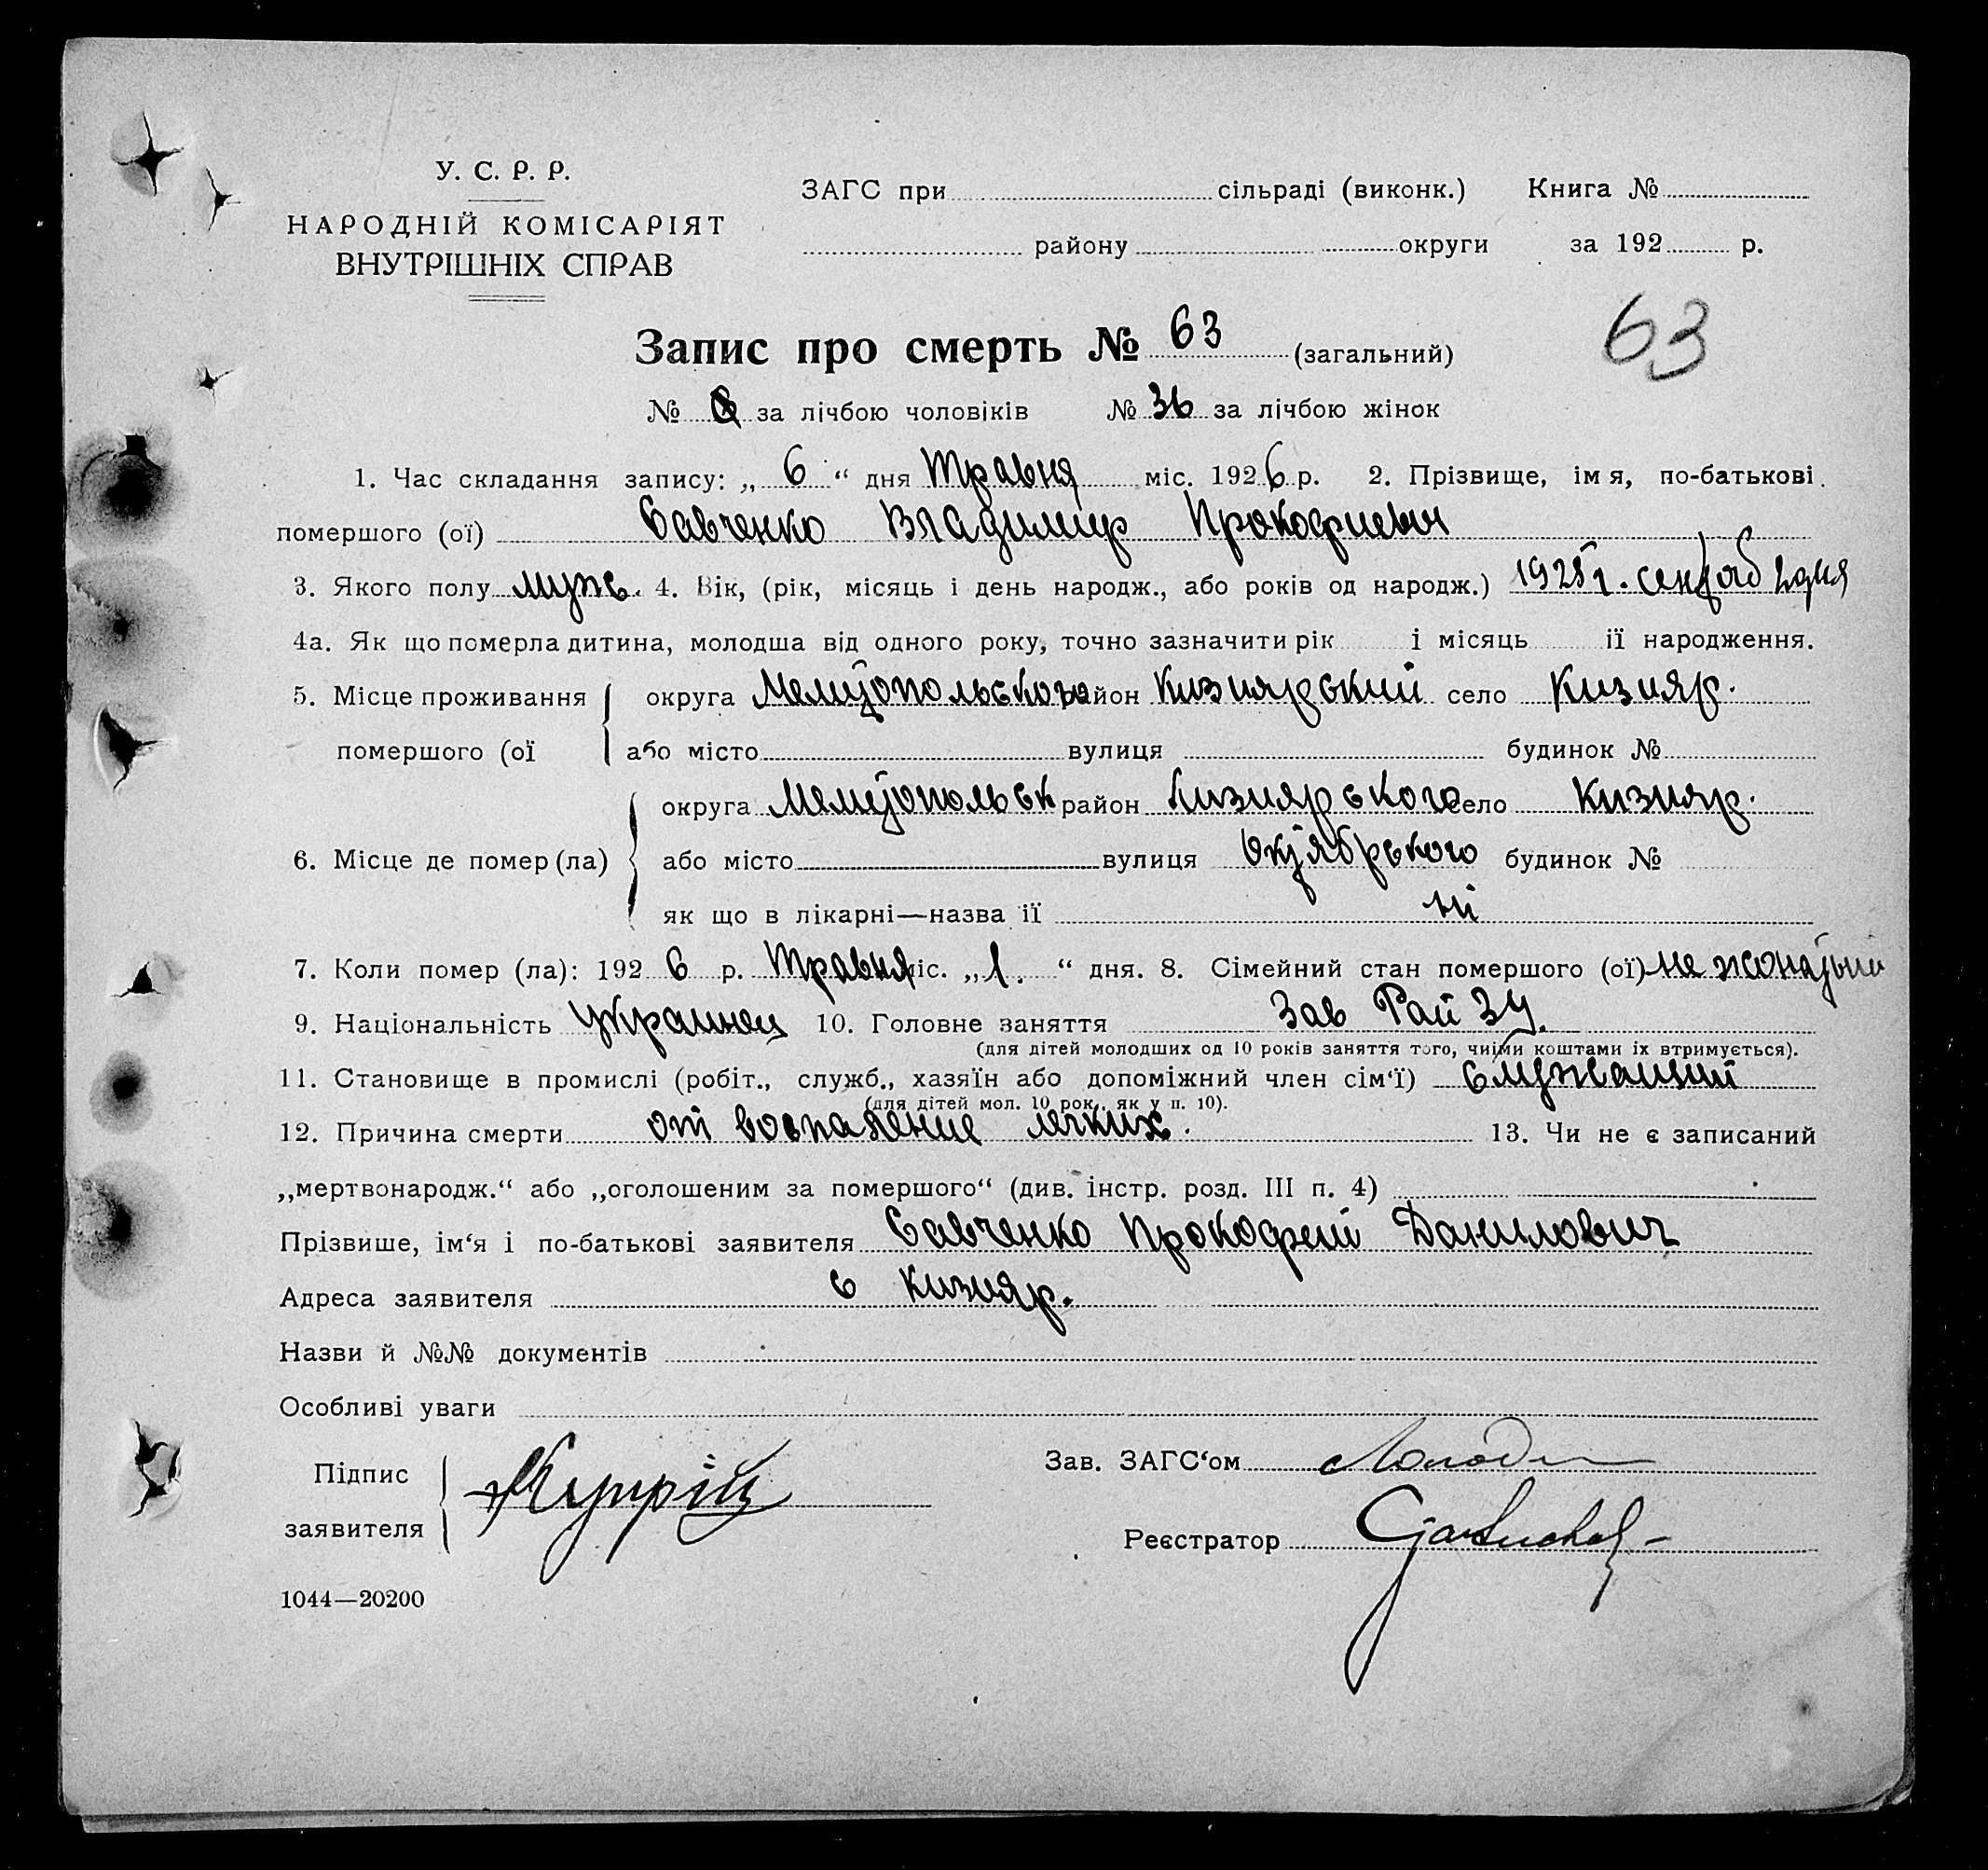 У. С. Р. Р.
НАРОДНІЙ КОМІСАРІЯТ
ВНУТРІШНІХ СПРАВ
ЗАГС при сільраді (виконк.) Книга №
району округи за 192 р.
Запис про смерть № 63 (загальний)
63
№ за лічбою чоловіків № 36 за лічбою жінок
1. Час складання запису: „ 6 “ дня Травня міс. 1926 р. 2. Прізвище, імя, по-батькові
помершого (ої) Савченко Владимир Прокофиевич
3. Якого полу муж. 4. Вік, (рік, місяць і день народж., або років од народж.) 1925 г.
4а. Як що померла дитина, молодша від одного року, точно зазначити рік і місяць ії народження.
5. Місце проживання округа Мелитопольского район Кизиярський село Кизияр.
помершого (ої або місто вулиця будинок №
округа Мелитопольськ район Кизиярського село Кизияр.
6. Місце де помер (ла) або місто вулиця Октябрського будинок №
як що в лікарні—назва ії ні
7. Коли помер (ла): 192 6 р. Травня міс. „1. “ дня. 8. Сімейний стан помершого (ої) не жонатый
9. Національність украинец 10. Головне заняття Зав Рай ЗУ.
(для дітей молодших од 10 років заняття того, чиїми коштами їх втримується).
11. Становище в промислі (робіт., служб., хазяїн або допоміжний член сім‘ї) служащий
(для дітей мол. 10 рок., як у п. 10).
12. Причина смерти от воспаление легких. 13. Чи не є записаний
„мертвонародж.“ або „оголошеним за помершого“ (див. інстр. розд. III п. 4)
Прізвише, ім‘я і по-батькові заявителя Савченко Прокофий Данилович
Адреса заявителя с Кизияр.
Назви й №№ документів
Особливі уваги
Підпис
заявителя
Зав. ЗАГС‘ом
Реєстратор
1044—20200